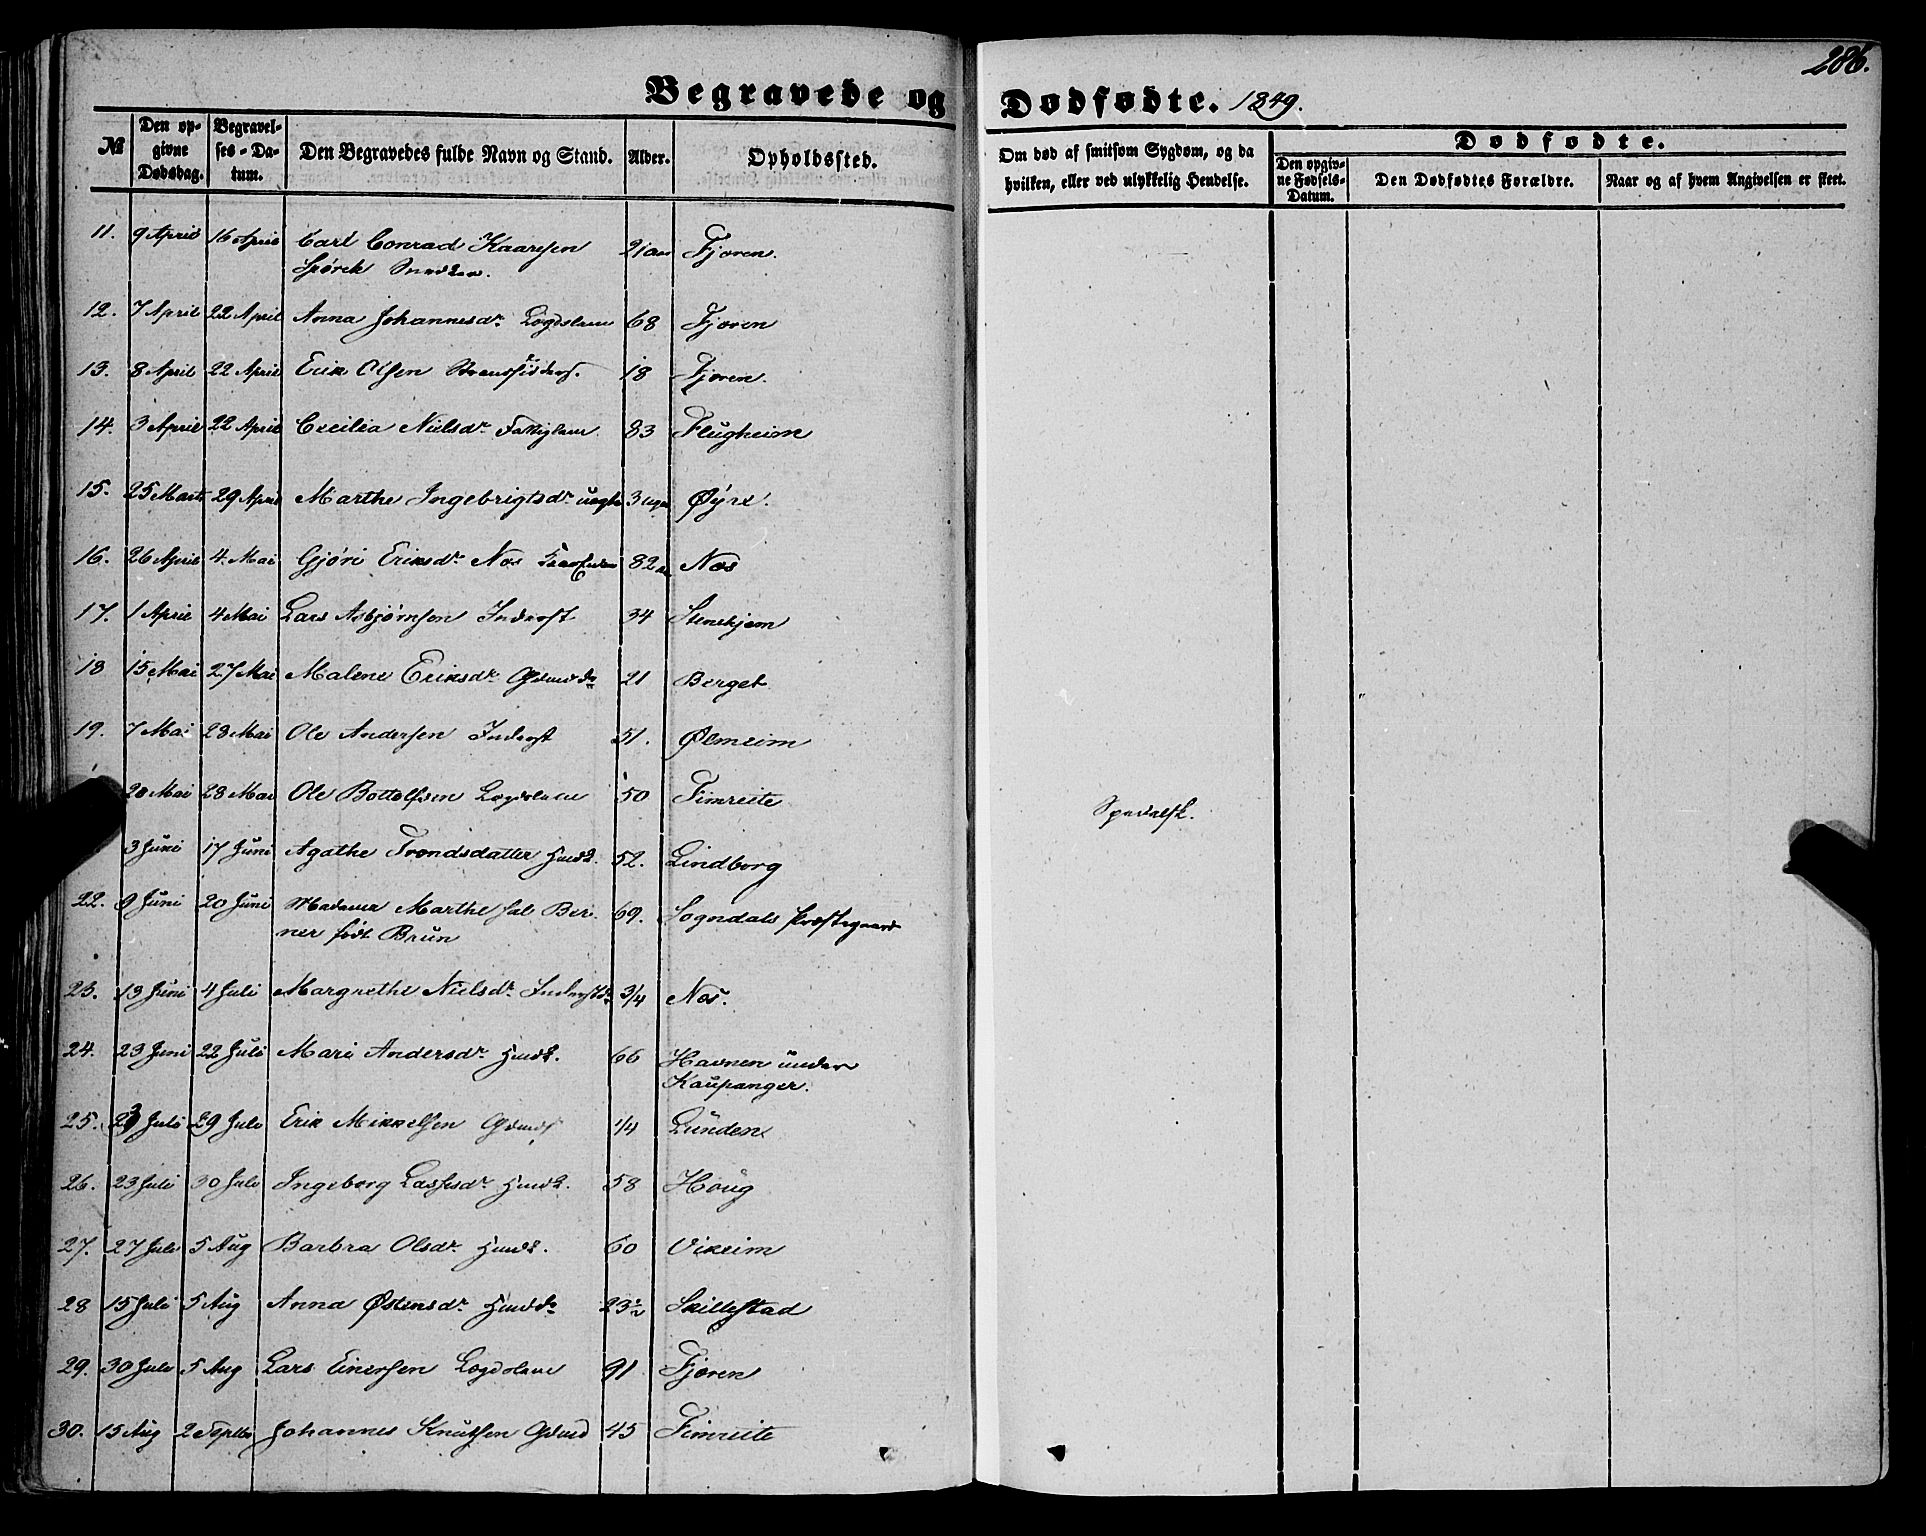 286.
Begravede og Dødfødte. 1849.
№ Den opgivne Dødsdag. Begravelses-Datum. Den Begravedes fulde Navn og Stand. Alder. Opholdssted. Om død af smitsom Sygdom, og da hvilken, eller ved ulykkelig Hendelse. Dødfødte. Den opgivne Fødsels-Datum. Den Dødfødtes Forældre. Naar og af hvem Angivelsen er skeet.
11. 9 April 16 April Carl Conrad Kaarsen 21 aar Fjæren.
Spørck Snedker.
12. 7 April 22 April Anna Johannesdr Lægdslem 68 Fjæren
13. 8 April 22 April Erik Olsen 18 Fjæren.
14. 3 April 22 April Cecilia Nielsdr Fattiglem 83 Flugheim
15. 25 Marts 29 April Marthe Ingebrigtsdr uægte 3 Uger Øyre.
16. 26 April 4. Mai Gjøri Eriksdr Nos 82 Nos
17. 1 April 4 Mai Lars Asbjørnsen Inderst 34 Stenehjem
18 15 Mai 27 Mai Malene Eriksdr Gdmdr 21 Berget
19. 7 Mai 28 Mai Ole Andersen Inderst 51. Ølmeim
20 Mai 28 Mai Ole Bottolfsen Lægdslem 50 Fimreite Spedalsk.
3 Juni 17 Juni Agathe Trondsdatter Husk. 52. Lindborg
22. 9 Juni 20 Juni Madame Marthe sal. Ber- 69. Sogndals Præstegaard
ner født Brun
23. 13 Juni 4 Juli Margrethe Nielsdr Inderstdr 3/4 Nos.
24. 23 Juni 22 Juli Mari Andersdr Husk. 66 Havnen under
Kaupanger.
25. 23 Juli 29 Juli Erik Mikkelsen Gdmds 1/4 Lunden
26. 23 Juli 30 Juli Ingeborg Lassesdr Husk. 58 Houg
27. 27 Juli 5 Aug Barbra Olsdr Husk. 60 Vikeim
28 15 Juli 5 Aug Anna Østensdr Husmdr 23½ Skillestad
29. 30 Juli 5 Aug Lars Einersen Lægdslem 91 Fjæren
30. 15 Aug 2 Septbr Johannes Knutsen Gdmd 45 Fimreite